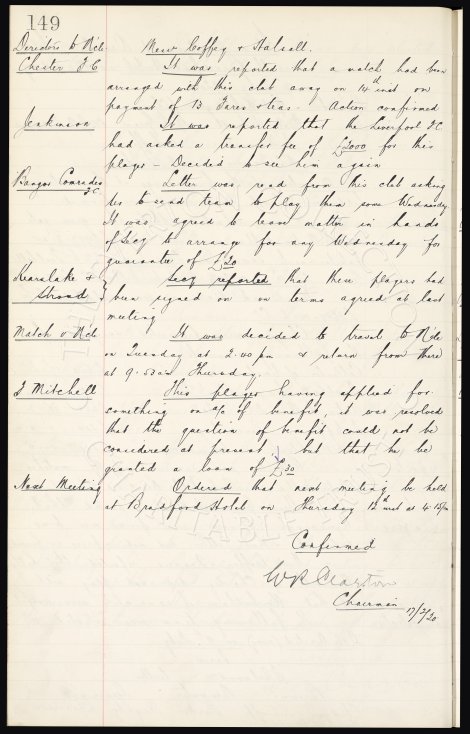 149
Directors to N'cle Messrs Coffey & Halsall.
Chester F C It was reported that a match had been
arranged with this club away on 14th inst on
payment of 13 Fares & teas. Action confirmed
Jenkinson It was reported that the Liverpool F.C.
had asked a transfer fee of £2000 for this
player – Decided to see him again
Bangor Comrades F.C. Letter was read from this club asking
us to send team to play them some Wednesday
It was agreed to leave matter in hands
of Secy to arrange for any Wednesday for
guarantee of £20
Kearslake & Secy reported that these players had
Stroud been signed on on terms agreed at last
meeting
Match v N'cle It was decided to travel to N'cle
on Tuesday at 2.00 pm & return from there
at 9.53 am Thursday.
J Mitchell This player having applied for
something on a/c of benefit, it was resolved
that the question of benefit could not be
considered at present, but that he be
granted a loan of £30
Next Meeting Ordered that next meeting be held
at Bradford Hotel on Thursday 12th inst at 4.15 pm
Confirmed
Chairman 17/2/20